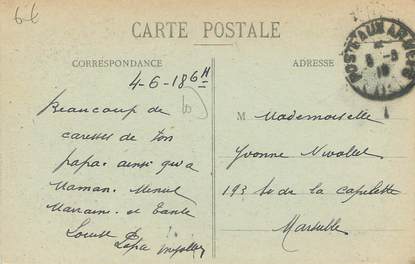 6-6
CARTE POSTALE
CORRESPONDANCE
ADRESSE
POSTE AUX ARMEES
4-6-18
Beaucoup de
caresses de ton
papa. ainsi qu'a
Maman.
Marraine et Tante
Louise
Papa
M Mademoiselle
Yvonne
193 de la capelette
Marseille